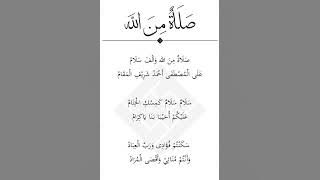 صَلَاةٌ مِنَ اللَّه
صَلَاةٌ مِنَ اللَّه وَأَلْفُ سَلَامٌ
عَلَى الْمُصْطَفَى أَحْمَدْ شَرِيْفِ الْمَقَامْ
سَلَامٌ سَلَامٌ كَمِسْكِ الْخِتَامْ
عَلَيْكُمْ أُحَيْبَابَنَا يَاكِرَامْ
سَكَنْتُمْ فُؤَادِى وَرَبِّ الْعِبَادْ
وَأَنْتُمْ مُنَائِيْ وَأَقْصَى الْمُرَادْ